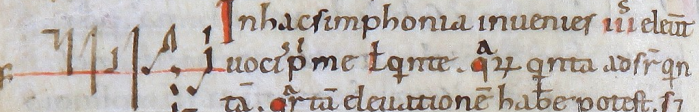 In hac simphonia inuenies iiii eleuat̄
uocis p̄me ł q̄nte. q̄a q̄nta ad sr̄ q̄n
tā. q̄rtā eleuationē habe potest. s;